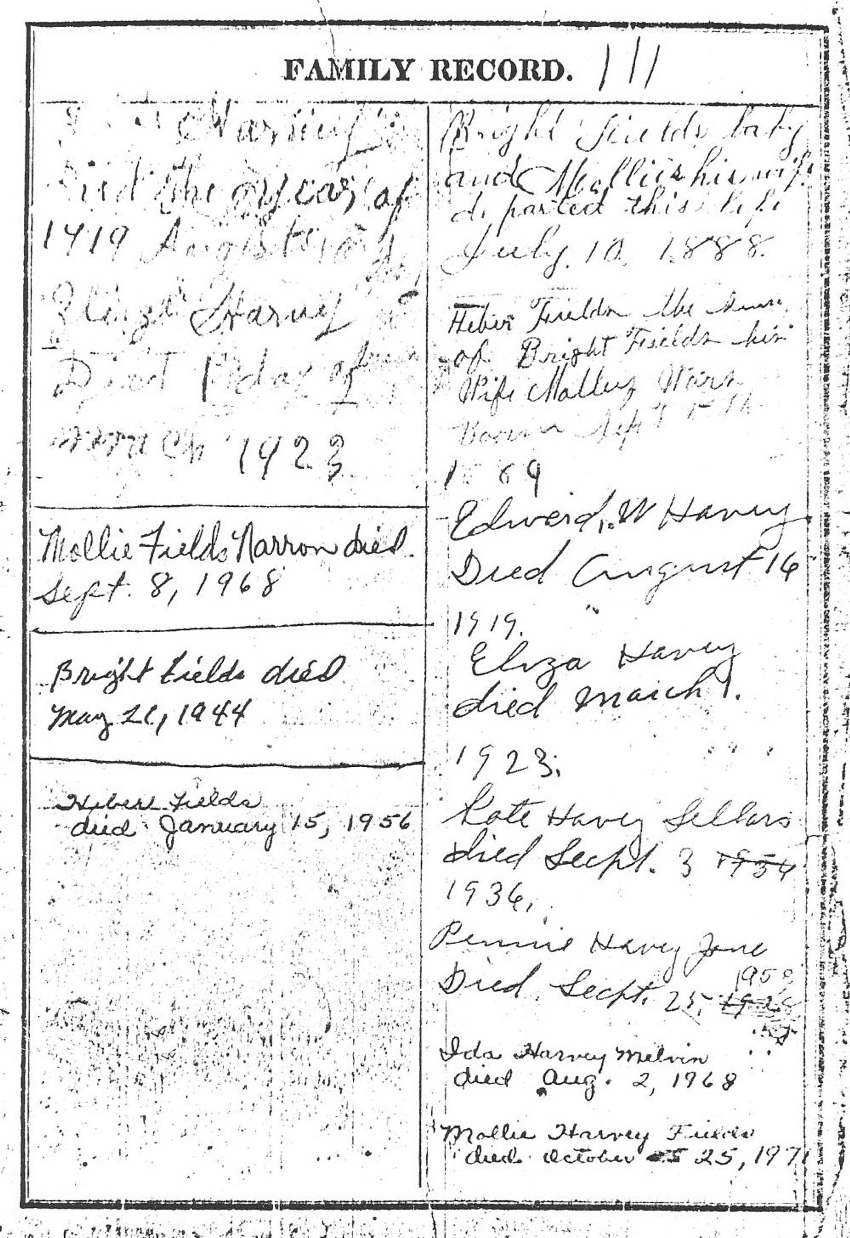 FAMILY RECORD. 111
Harvey
Died the year of
1919 August
Eliza Harvey
Died 1 day of
march 1923
Mollie Fields Narron died
Sept. 8, 1968
Bright Fields died
May 21, 1944
Hebert Fields
died January 15, 1956
Bright Fields baby
and Mollie his wife
departed this life
July. 10, 1888.
Heber Fields the
of Bright Fields his
Wife Malley Wars
Sept
1889
Edward. W Havey
Died August 16
1919.
Eliza Havey
died March 1.
1923.
Kate Havey Sellars
died Secpt. 3 1934
1936,
Pennie Havey Jone
Died. Secpt. 25,
Ida Harvey Melvin
died Aug. 2, 1968
Mollie Harvey Fields
died October 25, 1971